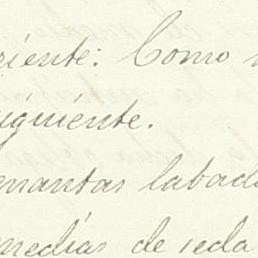 riente: Como
siguiénte.
enantas labad
medias de seda